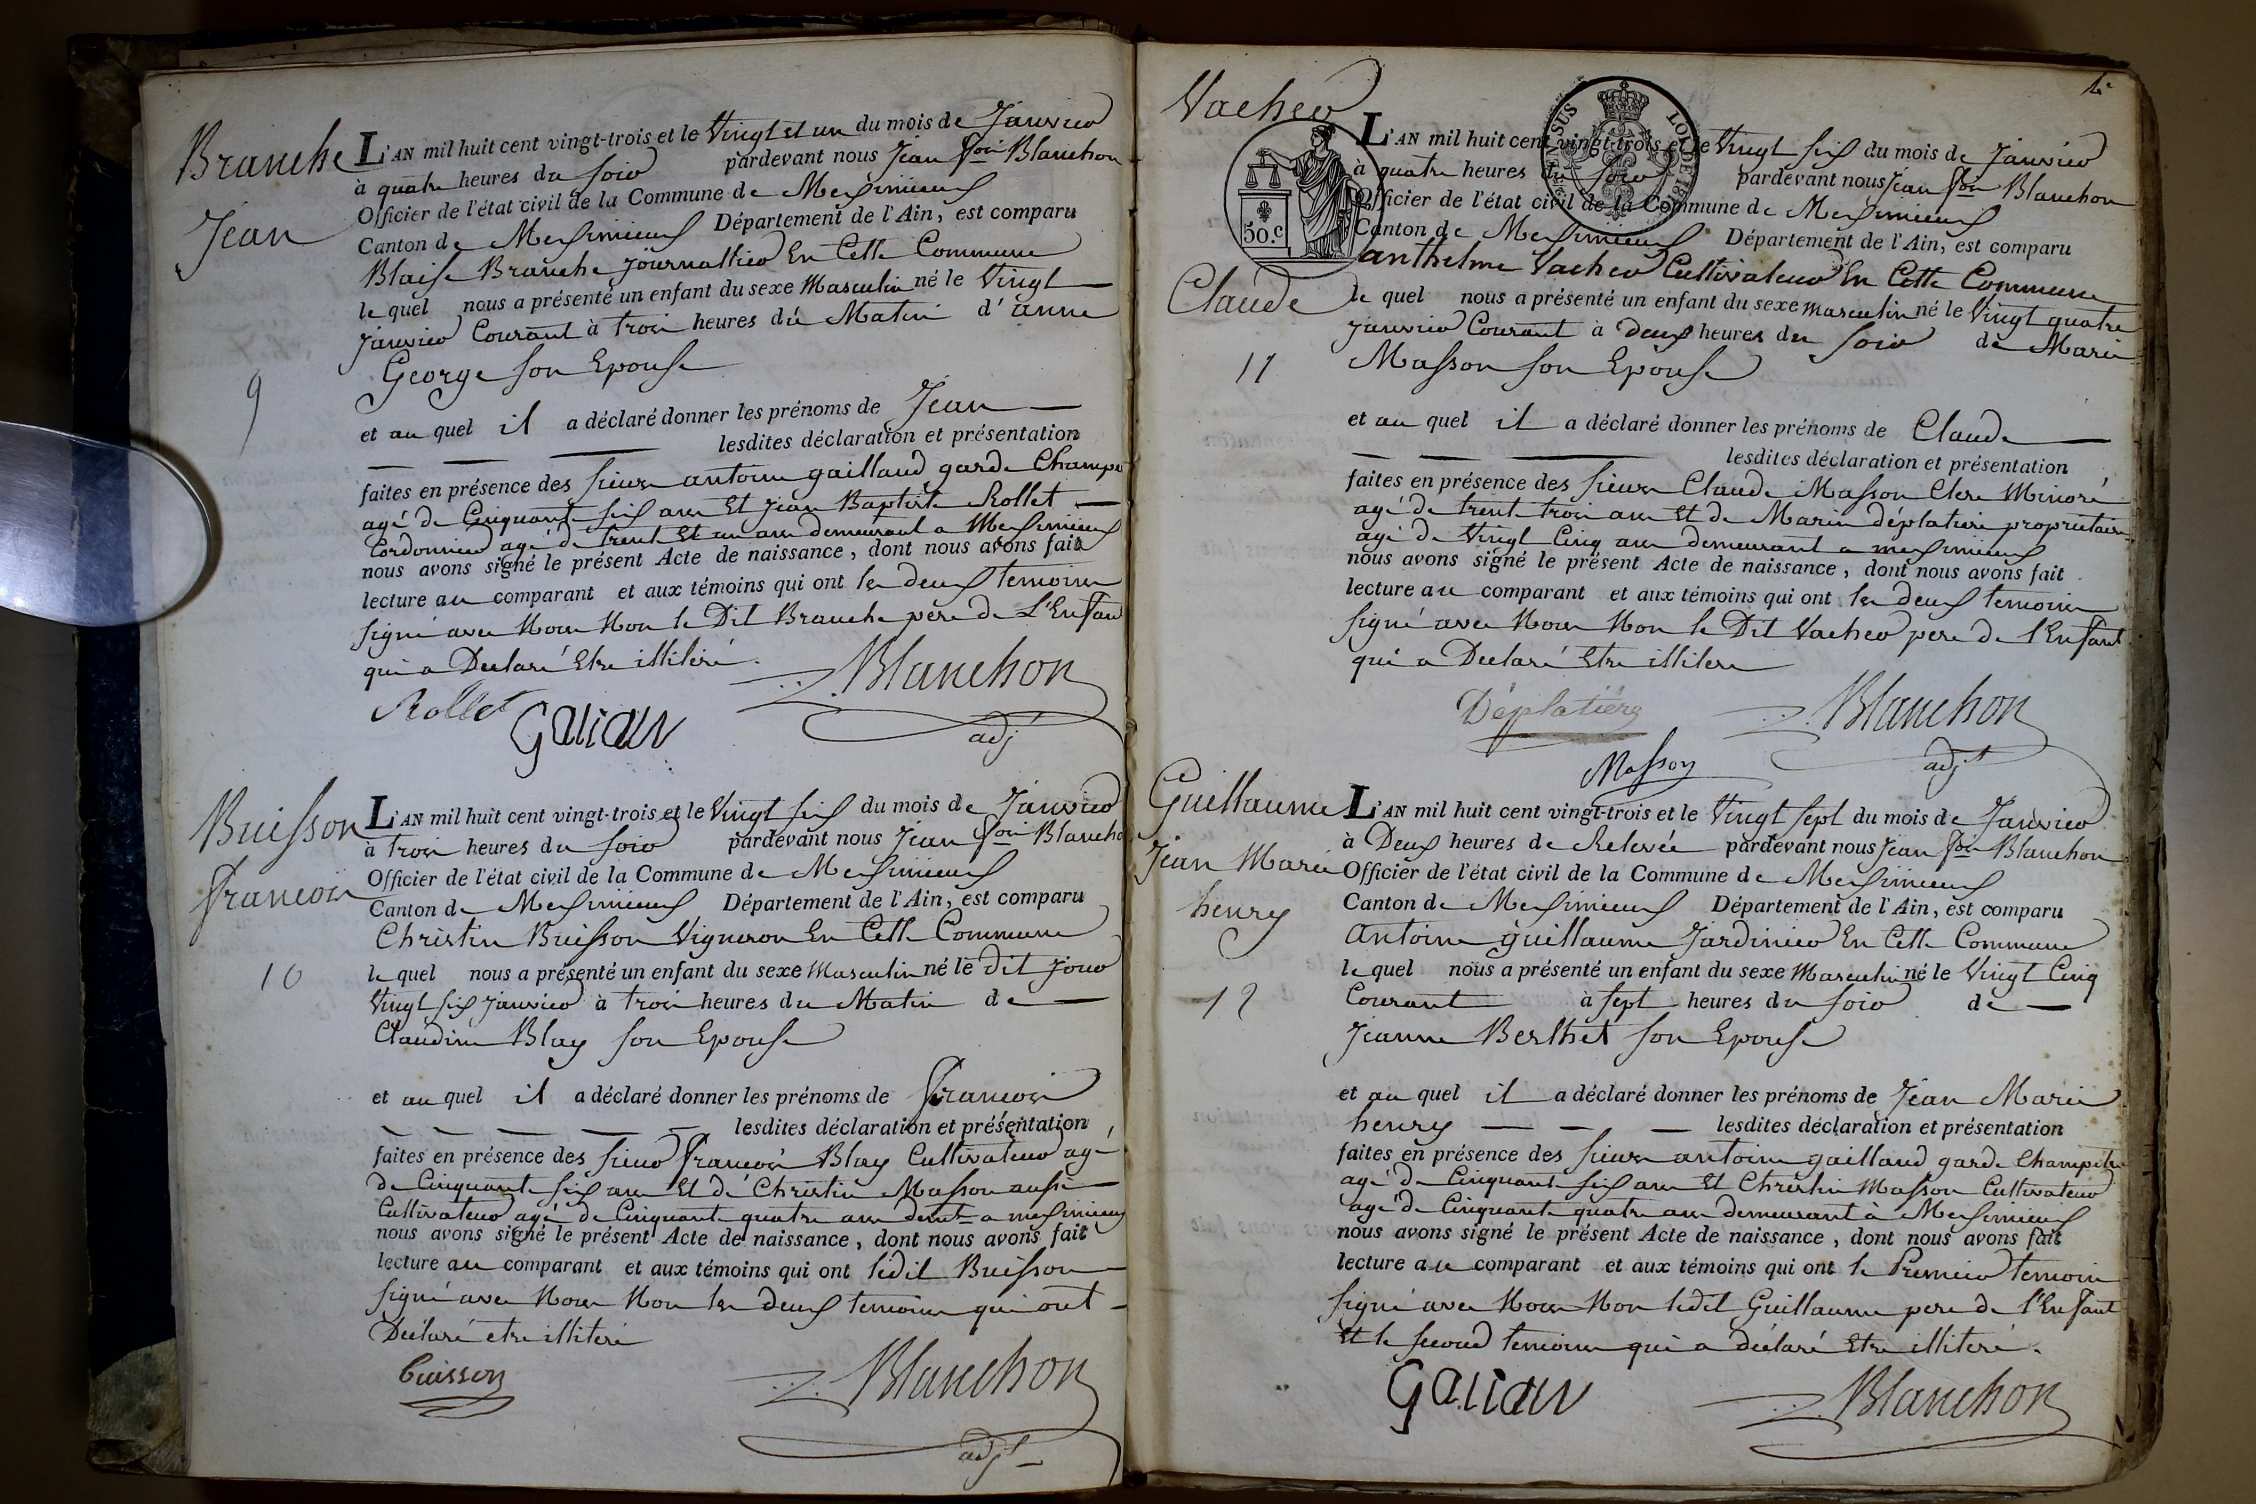 Branche
Jean
9
L'AN mil huit cent vingt-trois et le Vingt et un du mois de Janvier
à quatre heures du soir pardevant nous Jean fois Blanchon
Officier de l'état civil de la Commune de Meximieux
Canton de Meximieux Département de l'Ain, est comparu
Blaise Branche journallier En Cette Commune
le quel nous a présenté un enfant du sexe Masculin né le Vingt
janvier Courant à trois heures du Matin d'anne
George son Epouse
et au quel il a déclaré donner les prénoms de Jean
lesdites déclaration et présentation
faites en présence des sieurs antoine gailland garde Champe
agé de Cinquante six ans Et Jean Baptiste Rollet
Cordonnier agé de trente Et un ans demeurant a Meximieux
nous avons signé le présent Acte de naissance, dont nous avons fait
lecture au comparant et aux témoins qui ont les deux temoins
signé avec Nous Non le Dit Branche père de L'Enfant
qui a Declaré Etre illiteré.
Rollet Galian Blanchon
adj
Buisson
francois
10
L'AN mil huit cent vingt-trois et le Vingt six du mois de Janvier
à trois heures du soir pardevant nous Jean fois Blancho
Officier de l'état civil de la Commune de Meximieux
Canton de Meximieux Département de l'Ain, est comparu
Christin Buisson Vigneron En Cette Commune
le quel nous a présenté un enfant du sexe Masculin né le dit jour
Vingt six janvier à trois heures du Matin de
Claudine Blay son Epouse
et au quel il a déclaré donner les prénoms de francois
lesdites déclaration et présentation
faites en présence des sieur francois Blay Cultivateur agé
de Cinquante six ans Et de Christin Masson aussi
Cultivateur agé de Cinquante quatre ans demt a meximieux
nous avons signé le présent Acte de naissance, dont nous avons fait
lecture au comparant et aux témoins qui ont ledit Buisson
signé avec Nous Non les deux temoins qui ont
Déclaré etre illiteré
buisson Blanchon
adjt
4e
Vacher
Claude
11
50.c
L'AN mil huit cent vingt-trois et le Vingt six du mois de Janvier
à quatre heures du soir pardevant nous Jean fois Blanchon
Officier de l'état civil de la Commune de Meximieux
Canton de Meximieux Département de l'Ain, est comparu
anthelme Vacher Cultivateur En Cette Commune
le quel nous a présenté un enfant du sexe masculin né le Vingt quatre
janvier Courant à deux heures du soir de Marie
Masson son Epouse
et au quel il a déclaré donner les prénoms de Claude
lesdites déclaration et présentation
faites en présence des sieurs Claude Masson Clerc Minoré
agé de trente trois ans Et de Marin déplatiere proprietaire
agé de Vingt Cinq ans demeurant a meximieux
nous avons signé le présent Acte de naissance, dont nous avons fait
lecture au comparant et aux témoins qui ont les deux temoins
signé avec Nous Non le Dit Vacher pere de l'Enfant
qui a Declaré Etre illiteré
Déplatière Blanchon
Masson adjt
Guillaume
Jean Marie
henry
12
L'AN mil huit cent vingt-trois et le Vingt sept du mois de Janvier
à Deux heures de Relevée pardevant nous Jean fois Blanchon
Officier de l'état civil de la Commune de Meximieux
Canton de Meximieux Département de l'Ain, est comparu
Antoine guillaume Jardinier En Cette Commune
le quel nous a présenté un enfant du sexe Masculin né le Vingt Cinq
Courant à sept heures du soir de
Jeanne Berthet son Epouse
et au quel il a déclaré donner les prénoms de Jean Marie
henry lesdites déclaration et présentation
faites en présence des sieurs antoine gailland garde Champêtre
agé de Cinquante six ans Et Christin Masson Cultivateur
agé de Cinquante quatre ans demeurant à Meximieux
nous avons signé le présent Acte de naissance, dont nous avons fait
lecture au comparant et aux témoins qui ont le Premier temoin
signé avec Nous Non ledit Guillaume pere de l'Enfant
Et le second temoin qui a déclaré Etre illiteré.
Galian Blanchon